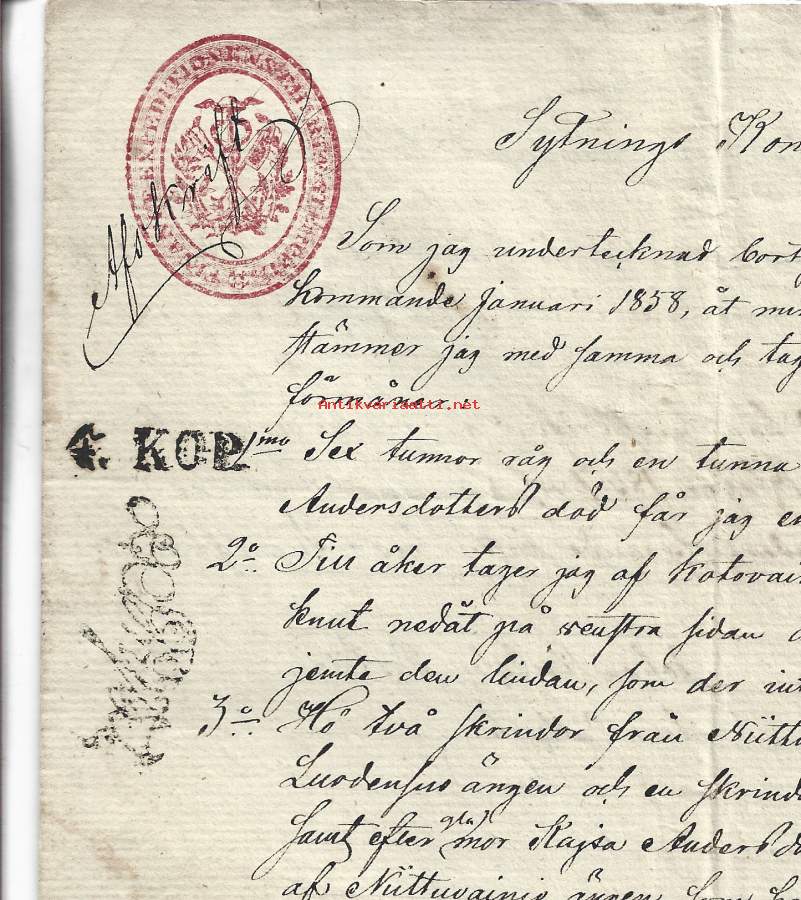 Afskrift
Sytnings Kon
Som jag undertecknad bort
kommande januari 1858, åt min
stämmer jag med samma och tag
förmåner:
Antikvariaatti.net
4. KOP.
1mo Sex tunnor råg och en tunna
Andersdotters död får jag en
2o Till åker tager jag af Kotovai
knut nedåt på venstra sidan
jemte den lindan, som der in
3o Hö två skrindor från Niittu
Luodensuo ängen och en skrind
samt efter mor Kajsa Andersd
af Niittuvainio ängen som